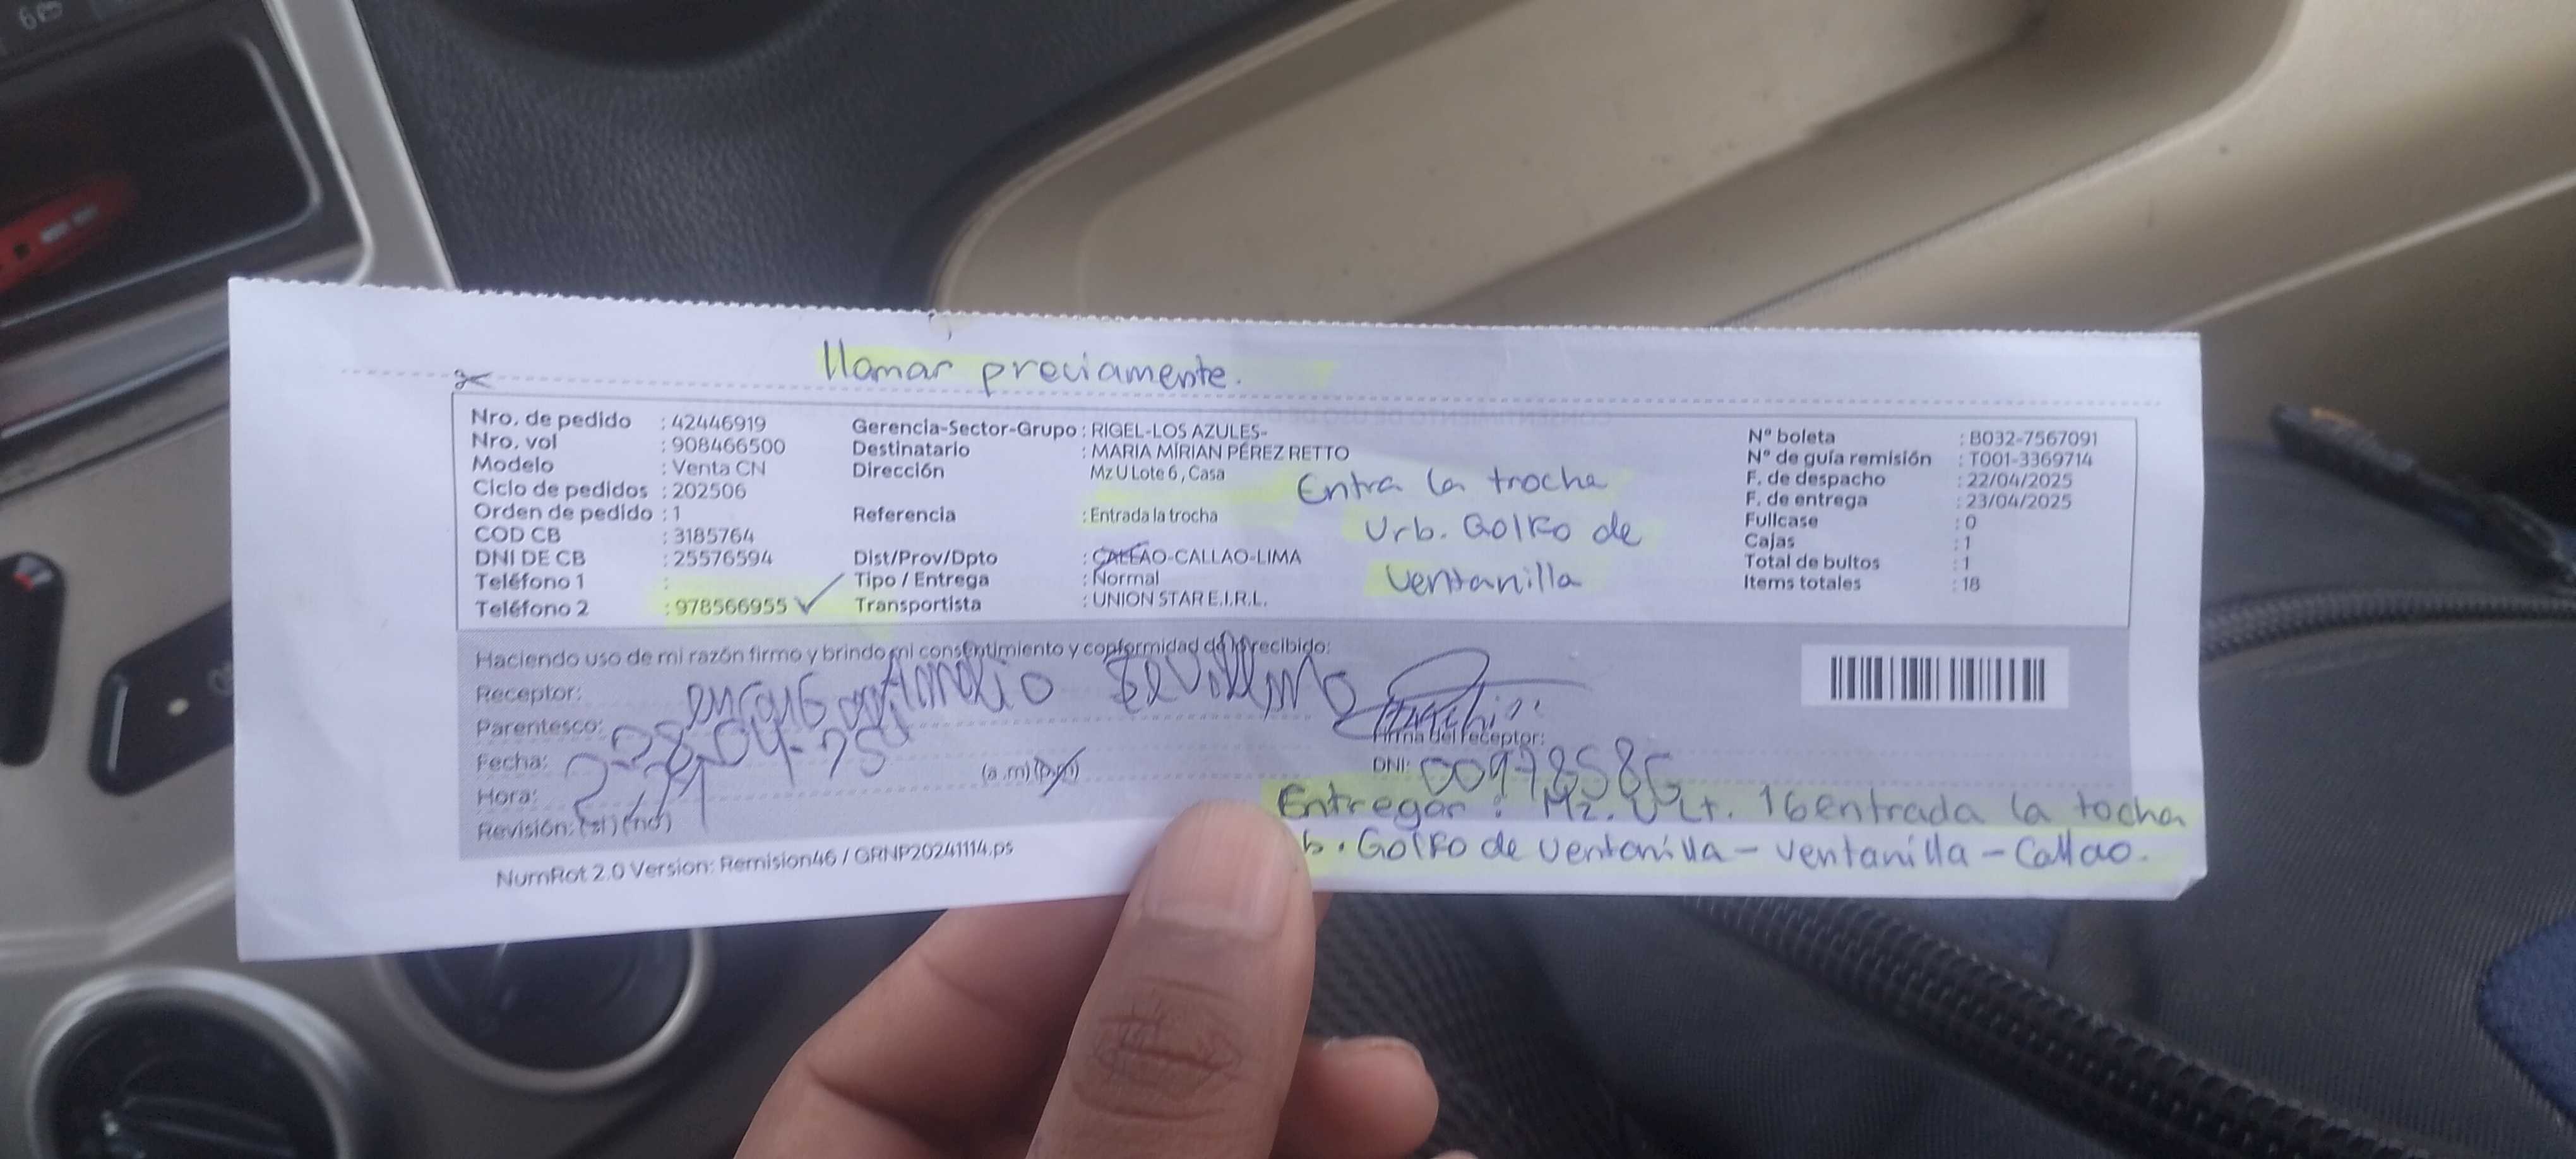 llamar previamente.
Nro. de pedido : 42446919
Nro. vol : 908466500
Modelo : Venta CN
Ciclo de pedidos : 202506
Orden de pedido : 1
COD CB : 3185764
DNI DE CB : 25576594
Teléfono 1 :
Teléfono 2 : 978566955 ✓
Gerencia-Sector-Grupo : RIGEL-LOS AZULES-
Destinatario : MARIA MÍRIAN PÉREZ RETTO
Dirección Mz U Lote 6 , Casa
Referencia : Entrada la trocha
Dist/Prov/Dpto : CALLAO-CALLAO-LIMA
Tipo / Entrega : Normal
Transportista : UNION STAR E.I.R.L.
Entra la trocha
Urb. Golfo de
Ventanilla
Nº boleta : B032-7567091
Nº de guía remisión : T001-3369714
F. de despacho : 22/04/2025
F. de entrega : 23/04/2025
Fullcase : 0
Cajas : 1
Total de bultos : 1
Items totales : 18
Haciendo uso de mi razón firmo y brindo mi consentimiento y conformidad de lo recibido:
Receptor:
Parentesco:
Fecha:
Hora:
(a.m) (p.m)
Revisión: (si) (no)
Firma del receptor:
DNI:
Entregar : Mz. U Lt. 16 entrada la tocha
b. Golfo de Ventanilla - Ventanilla - Callao.
NumRot 2.0 Version: Remision46 / GRNP20241114.ps